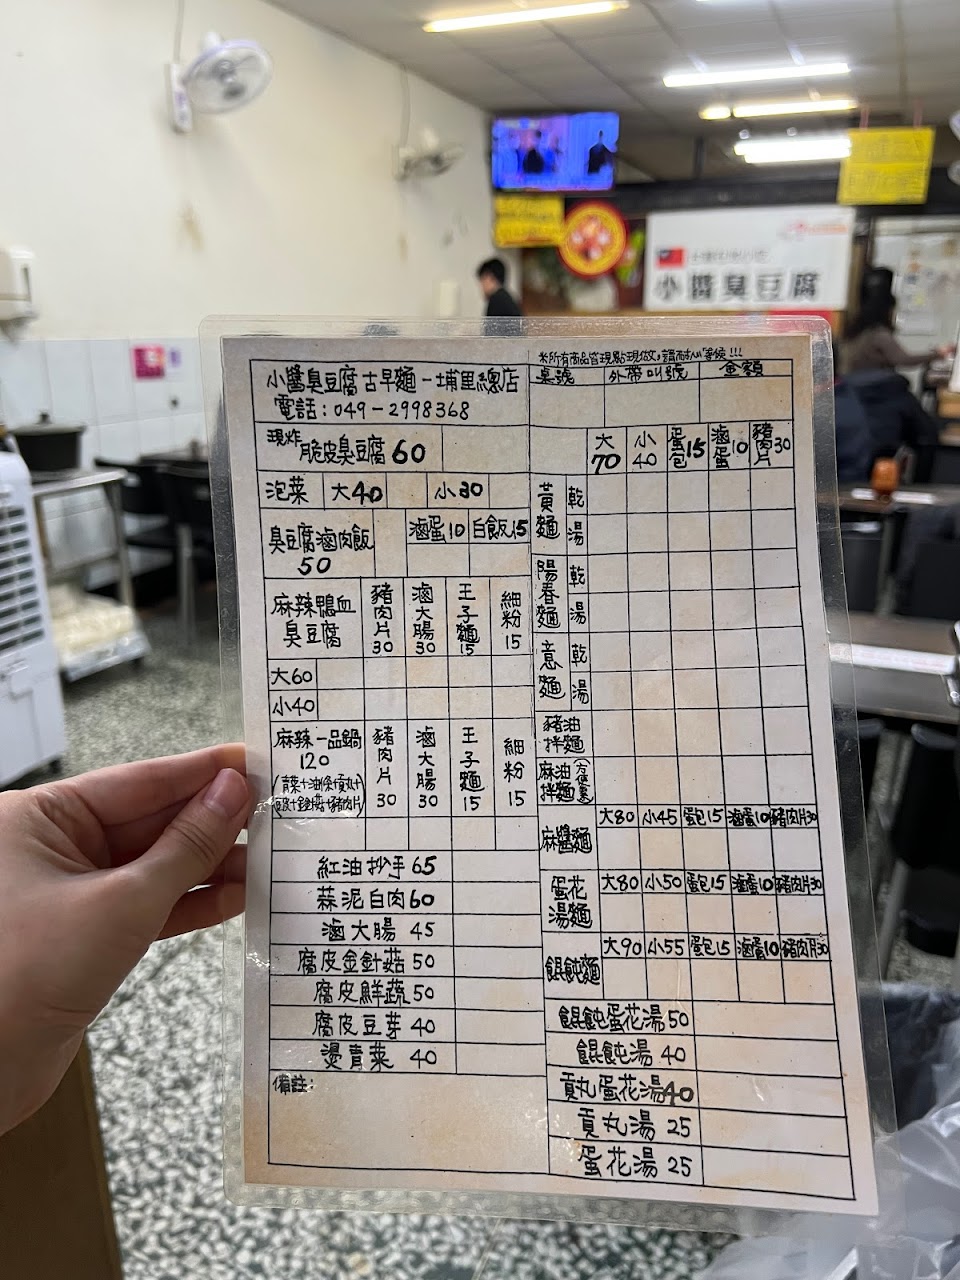 小醬臭豆腐
※所有商品皆現點現做,請耐心等候!!!
小醬臭豆腐古早麵-埔里總店
電話:049-2998368
現炸脆皮臭豆腐 60
泡菜 大40 小30
臭豆腐滷肉飯 50 滷蛋10 白飯15
麻辣鴨血臭豆腐 豬肉片30 滷大腸30 王子麵15 細粉15
大60
小40
麻辣一品鍋 120 豬肉片30 滷大腸30 王子麵15 細粉15
紅油抄手 65
蒜泥白肉 60
滷大腸 45
腐皮金針菇 50
腐皮鮮蔬 50
腐皮豆芽 40
燙青菜 40
備註:
桌號 外帶叫號 金額
大70 小40 蛋包15 滷蛋10 豬肉片30
黃麵 乾 湯
陽春麵 乾 湯
意麵 乾 湯
豬油拌麵
麻油拌麵
麻醬麵 大80 小45 蛋包15 滷蛋10 豬肉片30
蛋花湯麵 大80 小50 蛋包15 滷蛋10 豬肉片30
餛飩麵 大90 小55 蛋包15 滷蛋10 豬肉片30
餛飩蛋花湯 50
餛飩湯 40
貢丸蛋花湯 40
貢丸湯 25
蛋花湯 25